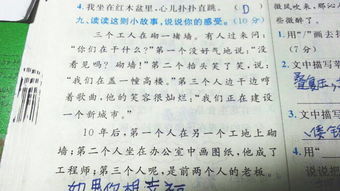 4. 我坐在红木盆里,心儿扑扑直跳。 ( D )
九、读读这则小故事,说说你的感受。(10分)
三个工人在砌一堵墙。有人过来问:
“你们在干什么?”第一个没好气地说:“没
看见吗?砌墙!”第二个抬头笑了笑,说:
“我们在盖一幢高楼。”第三个人边干边哼
着歌曲,他的笑容很灿烂:“我们正在建设
一个新城市。”
10年后,第一个人在另一个工地上砌
墙;第二个人坐在办公室中画图纸,他成了
工程师;第三个人呢,是前两个人的老板。
如果你想幸福
微风吹来,那沁
些微醉了。
1. 用“/”画去括
(7分)
2. 文中描写
3. 文中描
4. 用“
说说把